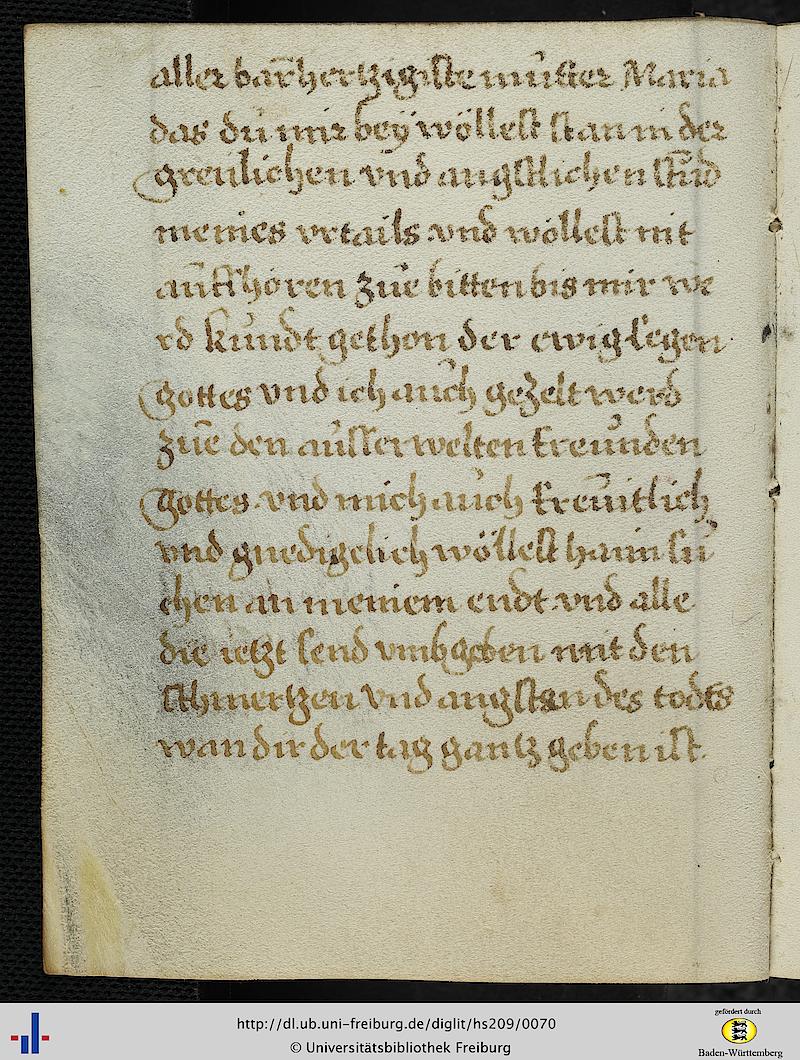 aller barm̄hertzigiste mǔtter Maria
das dǔ mir beÿ wöllest stan in der
greulichen vnd angstlichen stūd
meines vrtails vnd wöllest nit
aǔffhören zǔe bitten bis mir we
rd kǔndt gethon der ewig segen
Gottes vnd ich aǔch gezelt werd
zǔe den aǔsserwelten freǔnden
Gottes vnd mich aǔch freǔntlich
vnd gnedigclich wöllest haim sǔ
chen an meniem endt vnd alle
die ietzt send vmbgeben mit den
schmertzen vnd angsten des todts
wan dir der tag gantz geben ist.
http://dl.ub.uni-freiburg.de/diglit/hs209/0070
© Universitätsbibliothek Freiburg
gefördert durch
Baden-Württemberg